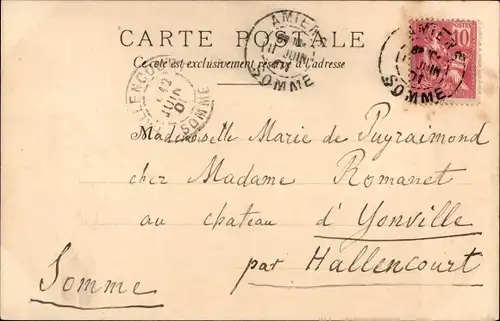 CARTE POSTALE
Ce côté est exclusivement réservé à l'adresse
AMIENS
JUIN
SOMME
AMIENS
JUIN
SOMME
10
POSTES
HALLENCOURT
12
JUIN
01
SOMME
Mademoiselle Marie de Puyraimond
chez Madame Romanet
au chateau d'Yonville
par Hallencourt
Somme